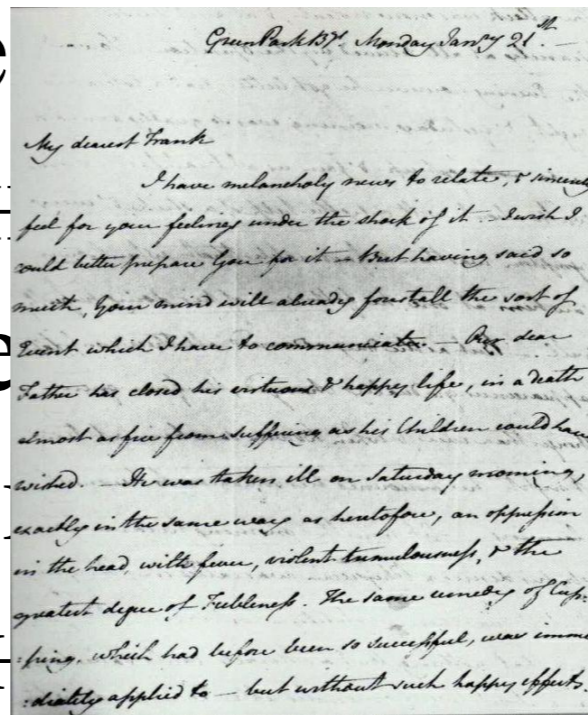 Green Park Bgs Monday Janry 21st.
My dearest Frank
I have melancholy news to relate, & sincerely
feel for your feelings under the shock of it. I wish I
could better prepare You for it. But having said so
much, Your mind will already forestall the sort of
Event which I have to communicate. — Our dear
Father has closed his virtuous & happy life, in a death
almost as free from suffering as his Children could have
wished. — He was taken ill on Saturday morning,
exactly in the same way as heretofore, an oppression
in the head, with fever, violent tremulousness, & the
greatest degree of Feebleness. The same remedy of Cup-
:ping, which had before been so successful, was imme
:diately applied to — but without such happy effects.